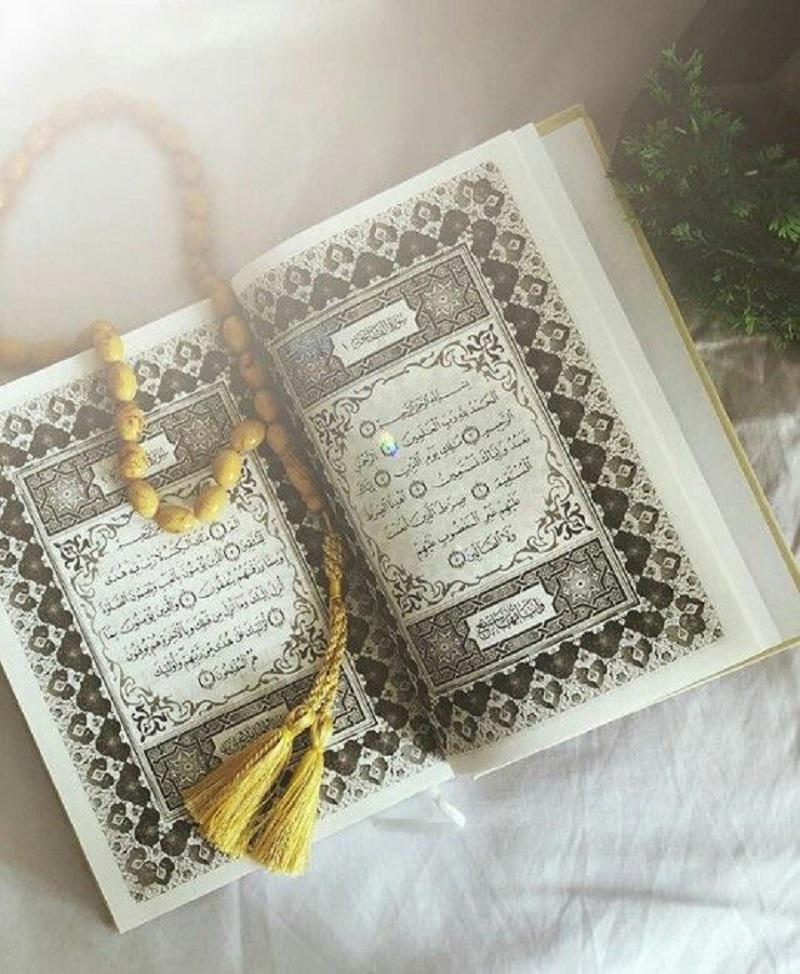 سورة الفاتحة ١
بسم الله الرحمن الرحيم ١
الحمد لله رب العلمين ٢ الرحمن
الرحيم ٣ ملك يوم الدين ٤ إياك
نعبد وإياك نستعين ٥ اهدنا الصراط
المستقيم ٦ صراط الذين أنعمت
عليهم غير المغضوب عليهم
ولا الضالين ٧
سورة
الرحيم
الم ١ ذلك الكتب لا ريب فيه هدى
للمتقين ٢ الذين يؤمنون بالغيب ويقيمون الصلوة
ومما رزقنهم ينفقون ٣ والذين يؤمنون بما
أنزل إليك وما أنزل من قبلك وبالآخرة هم يوقنون ٤
أولئك على هدى من ربهم وأولئك
هم المفلحون ٥